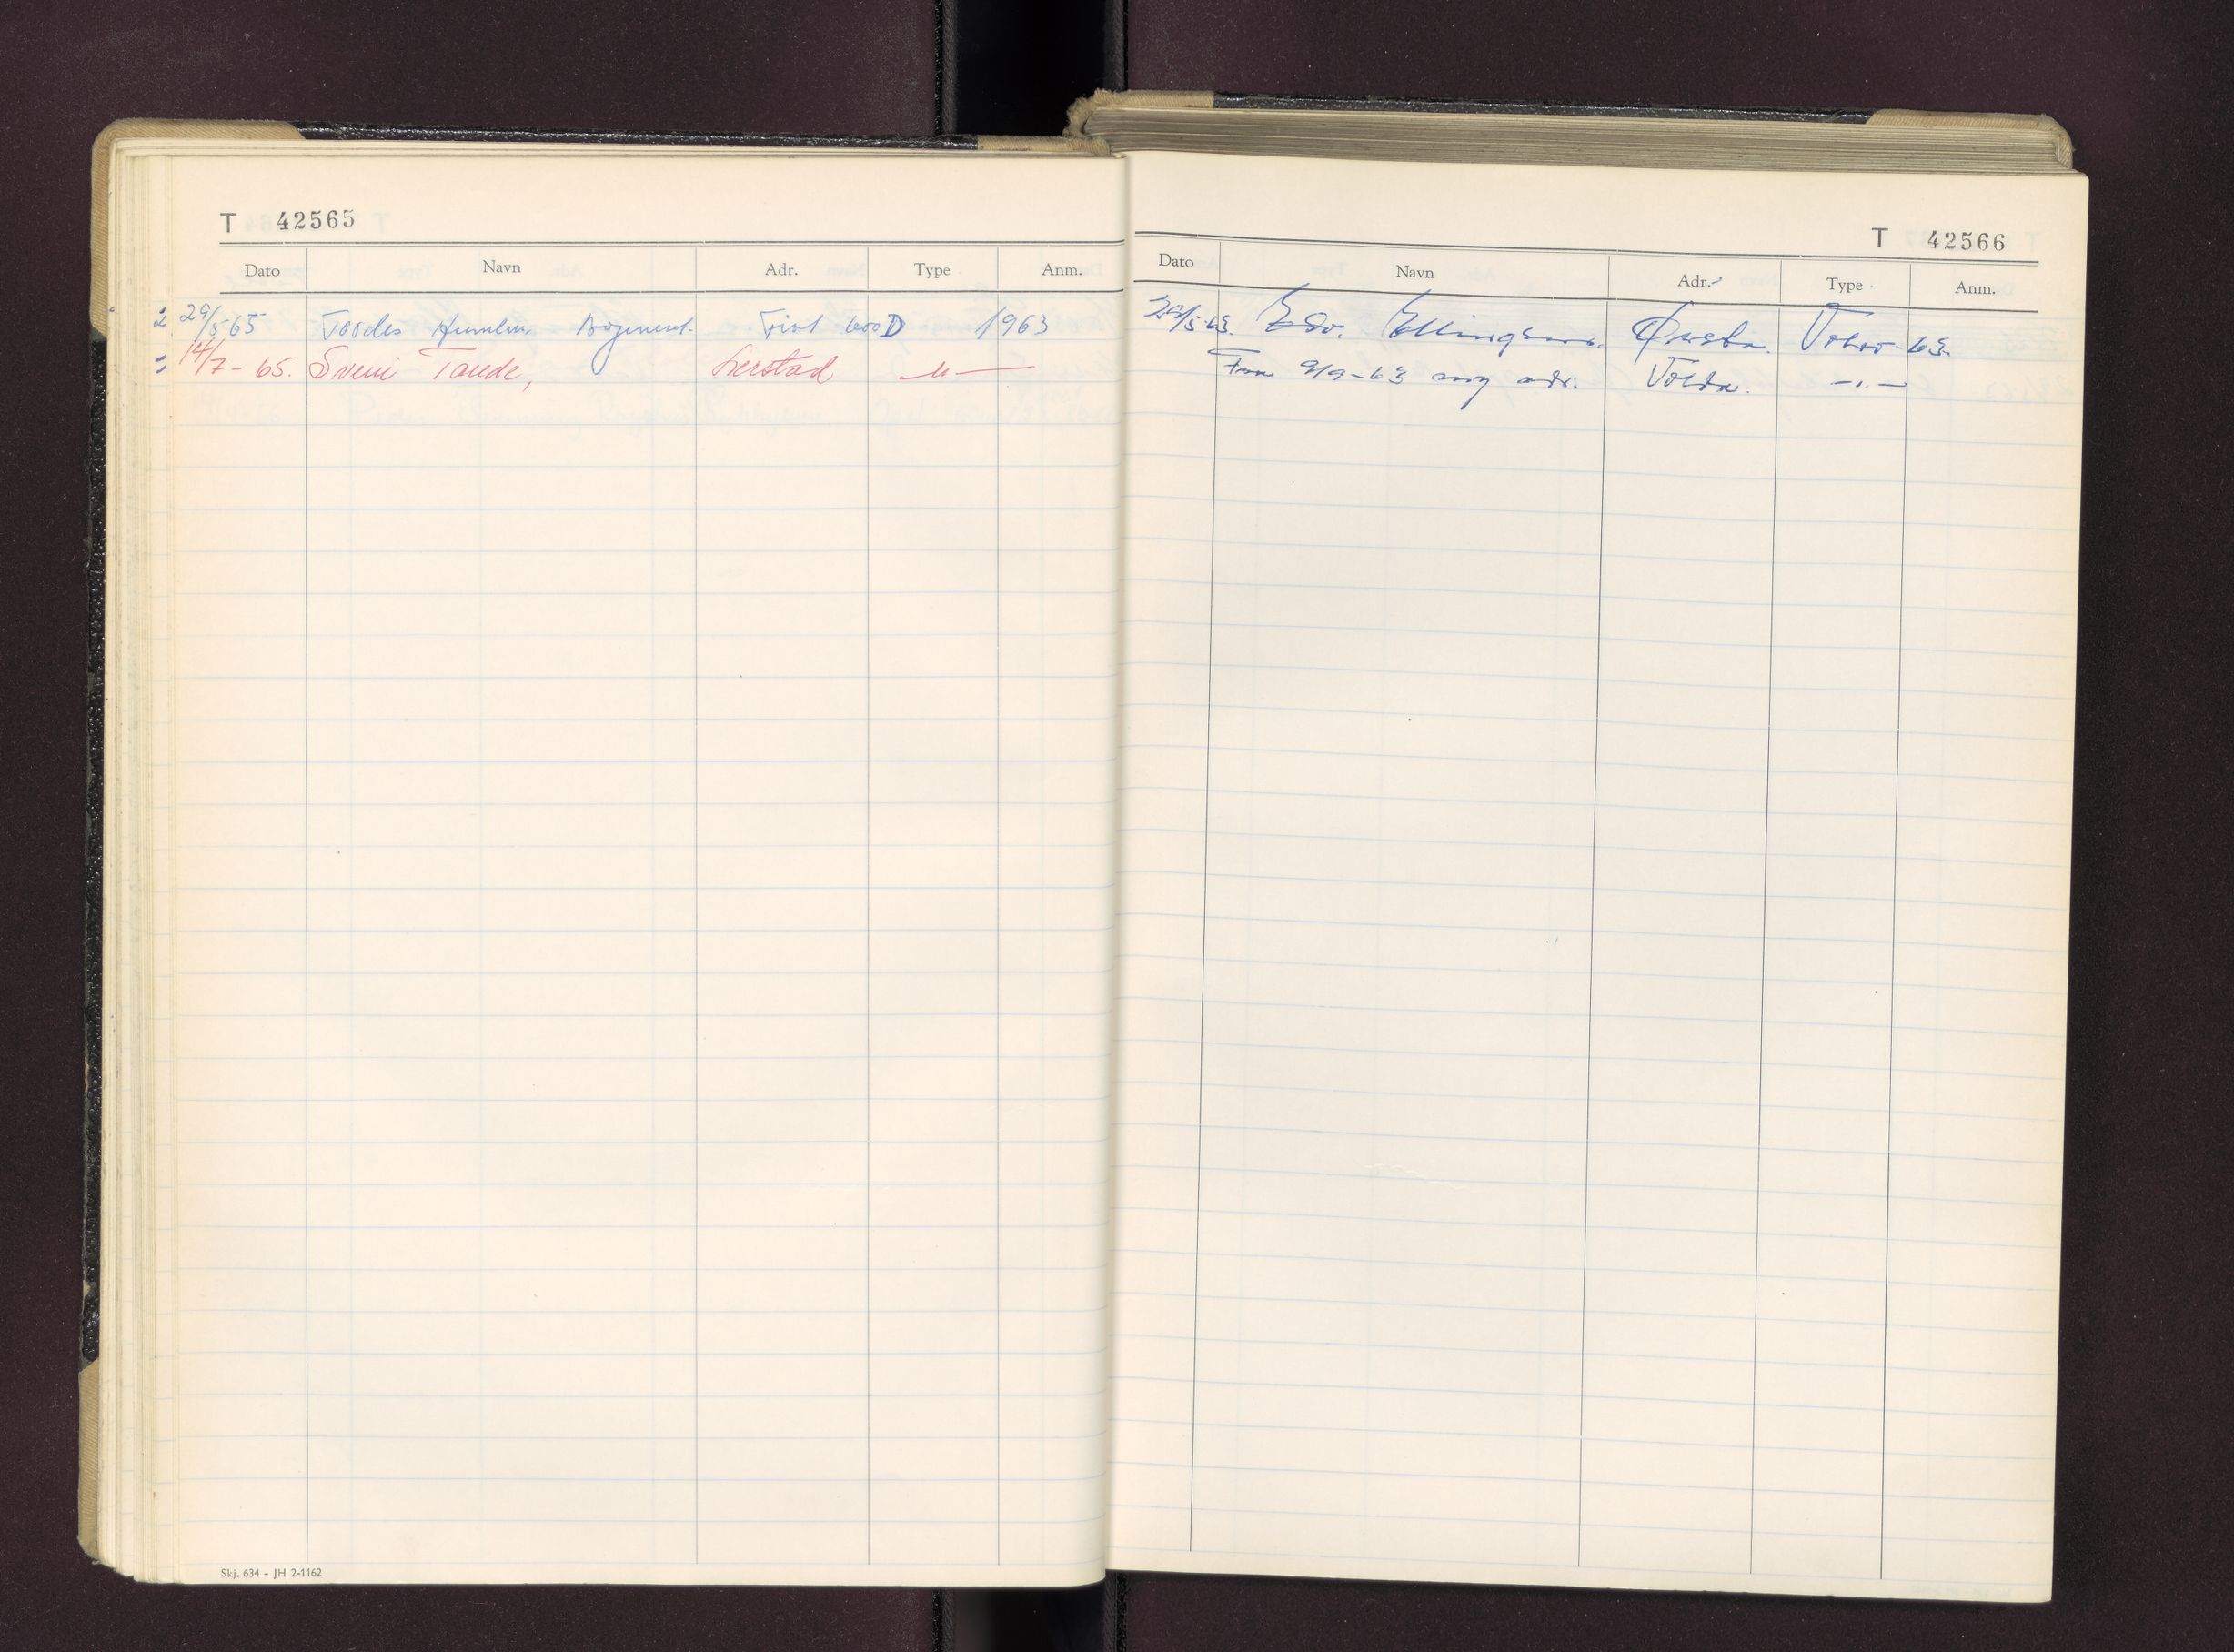 T 42565
Dato Navn Adr. Type Anm.
29/5 65 Fiat 600 D 1963
14/7-65. Svein Tande, Lerstad —"—
Skj. 634 - JH 2-1162
T 42566
Dato Navn Adr. Type Anm.
29/5-63. Edv. Ellingsen. Ørsta. Volvo-63.
Fra 9/9-63 ny adr. Volda. —"—